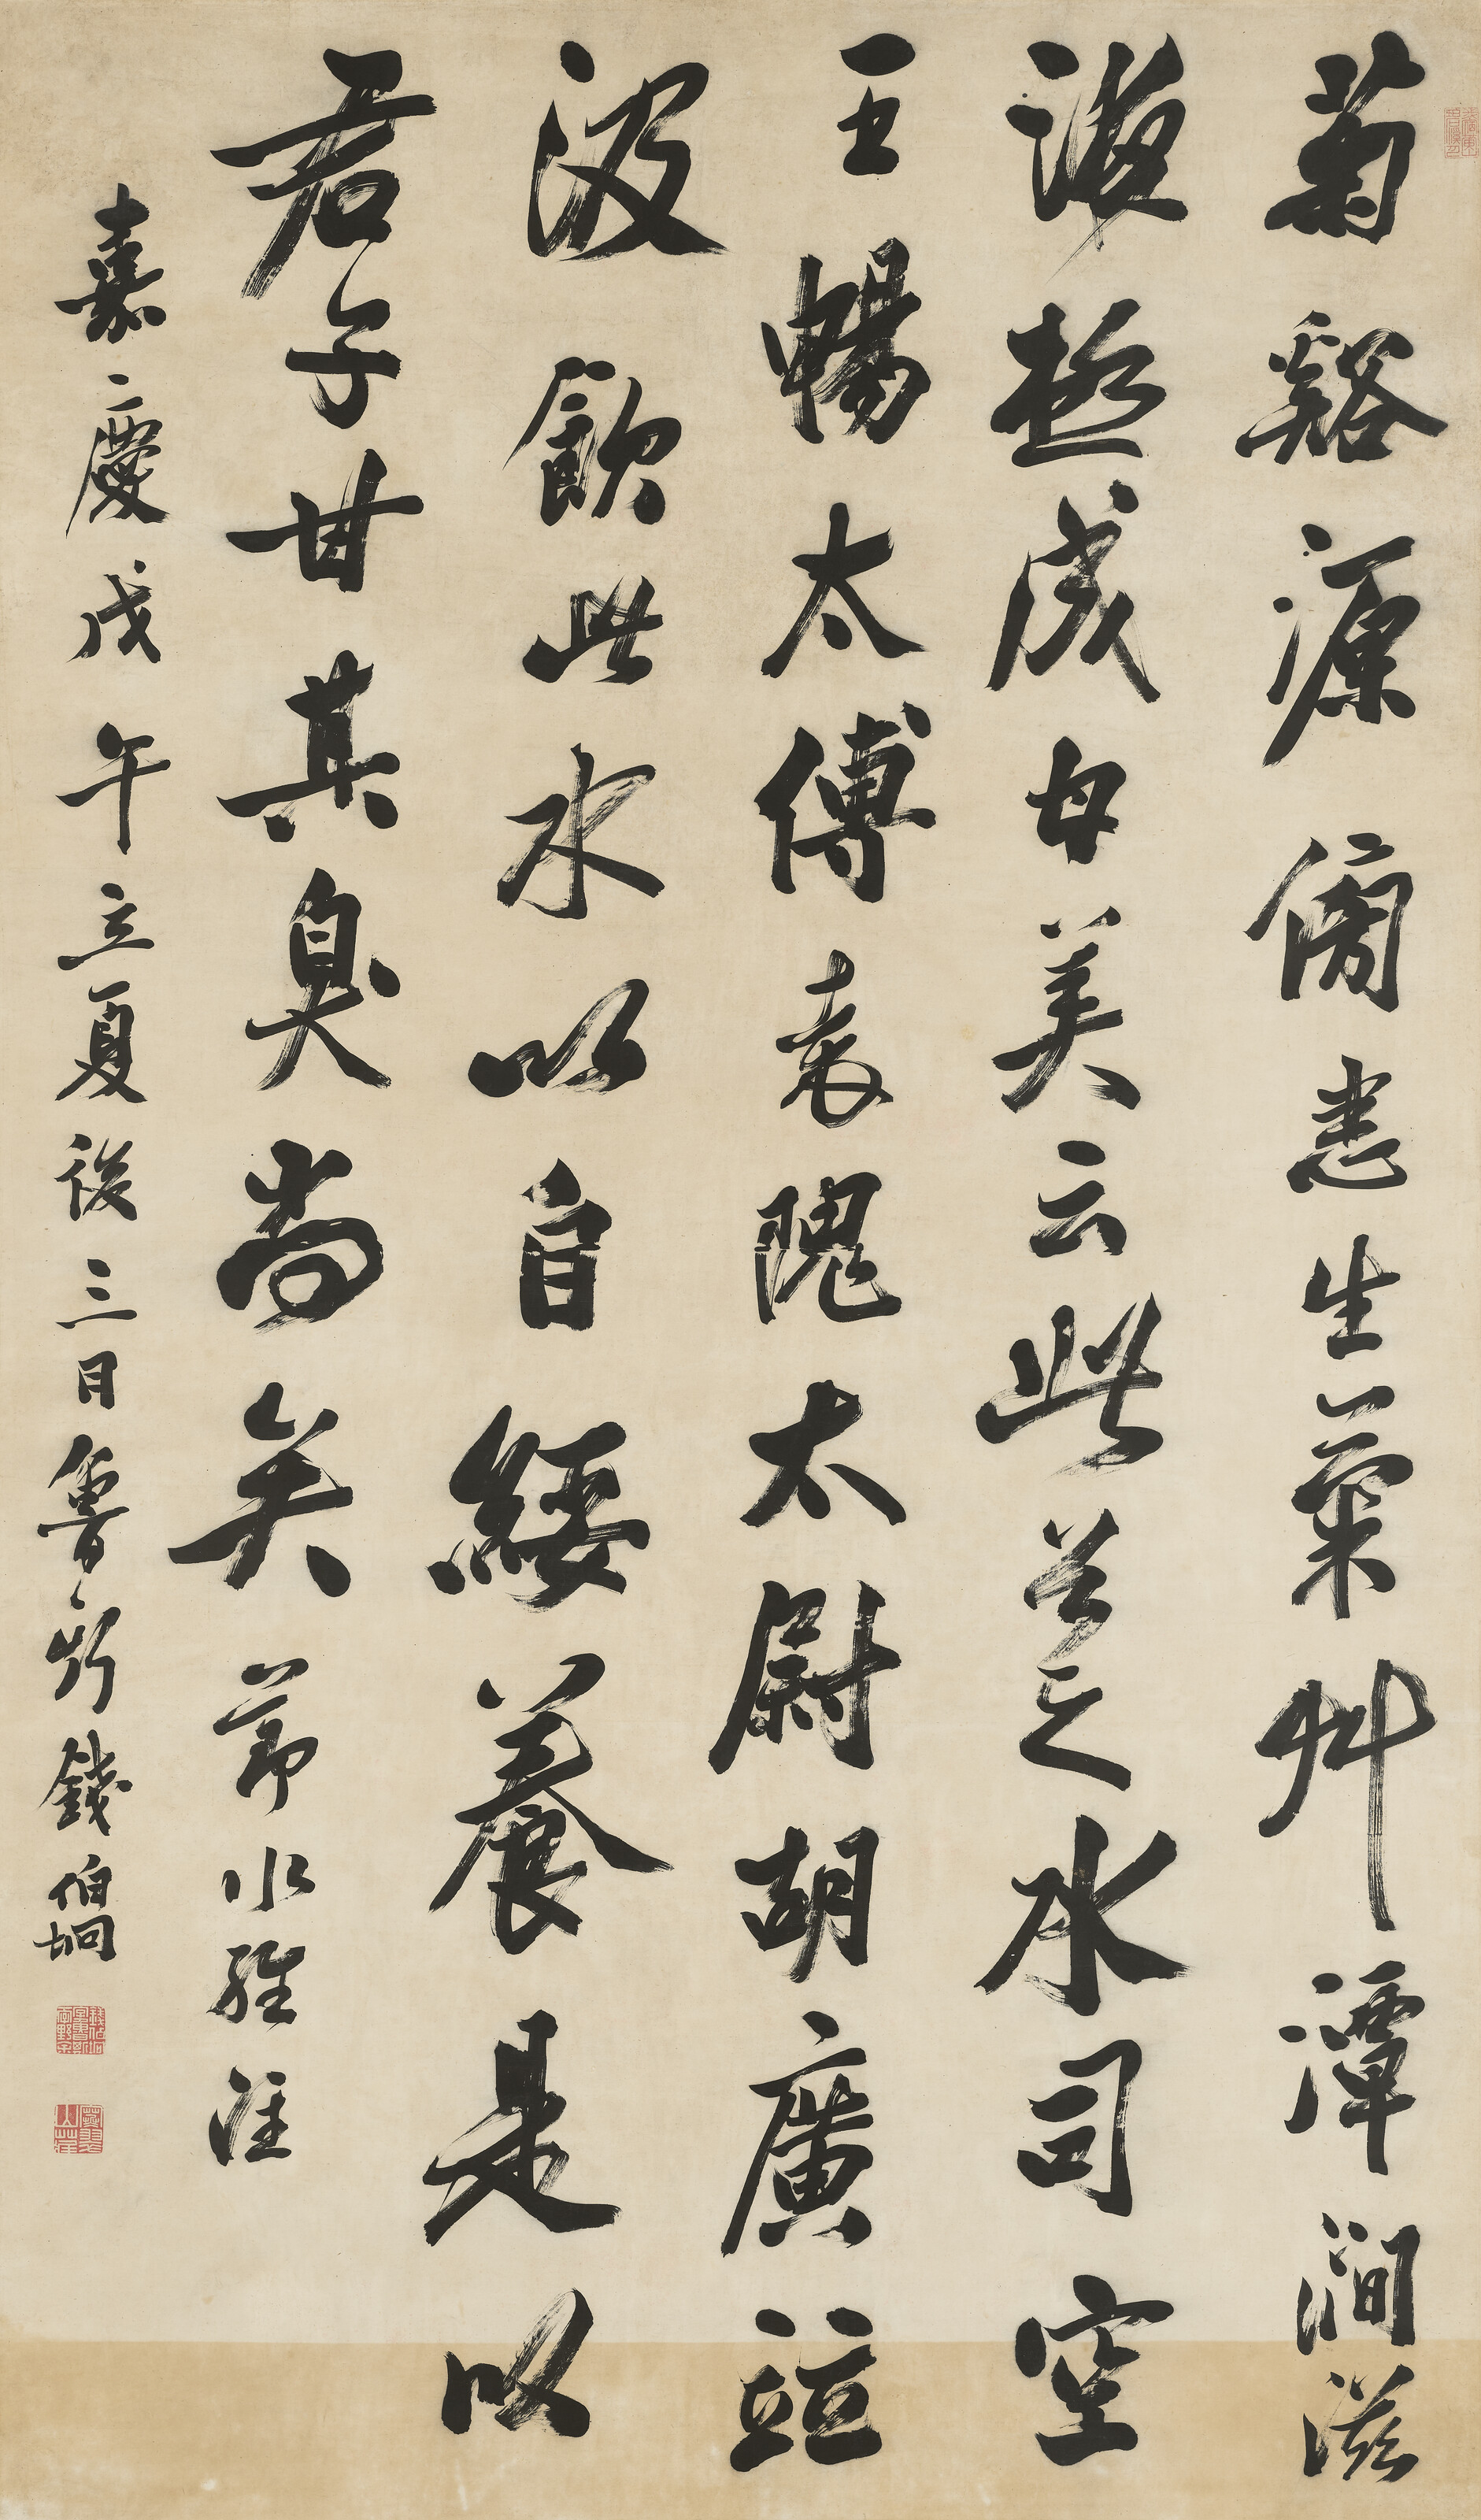 菊谿源傍悉生菊草潭澗滋
液極成甘美云此谷之水司空
王暢太傅袁隗太尉胡廣竝
汲飲此水以自綏養是以
君子甘其臭尚矣 節水經注
嘉慶戊午立夏後三日魯斯錢伯坰